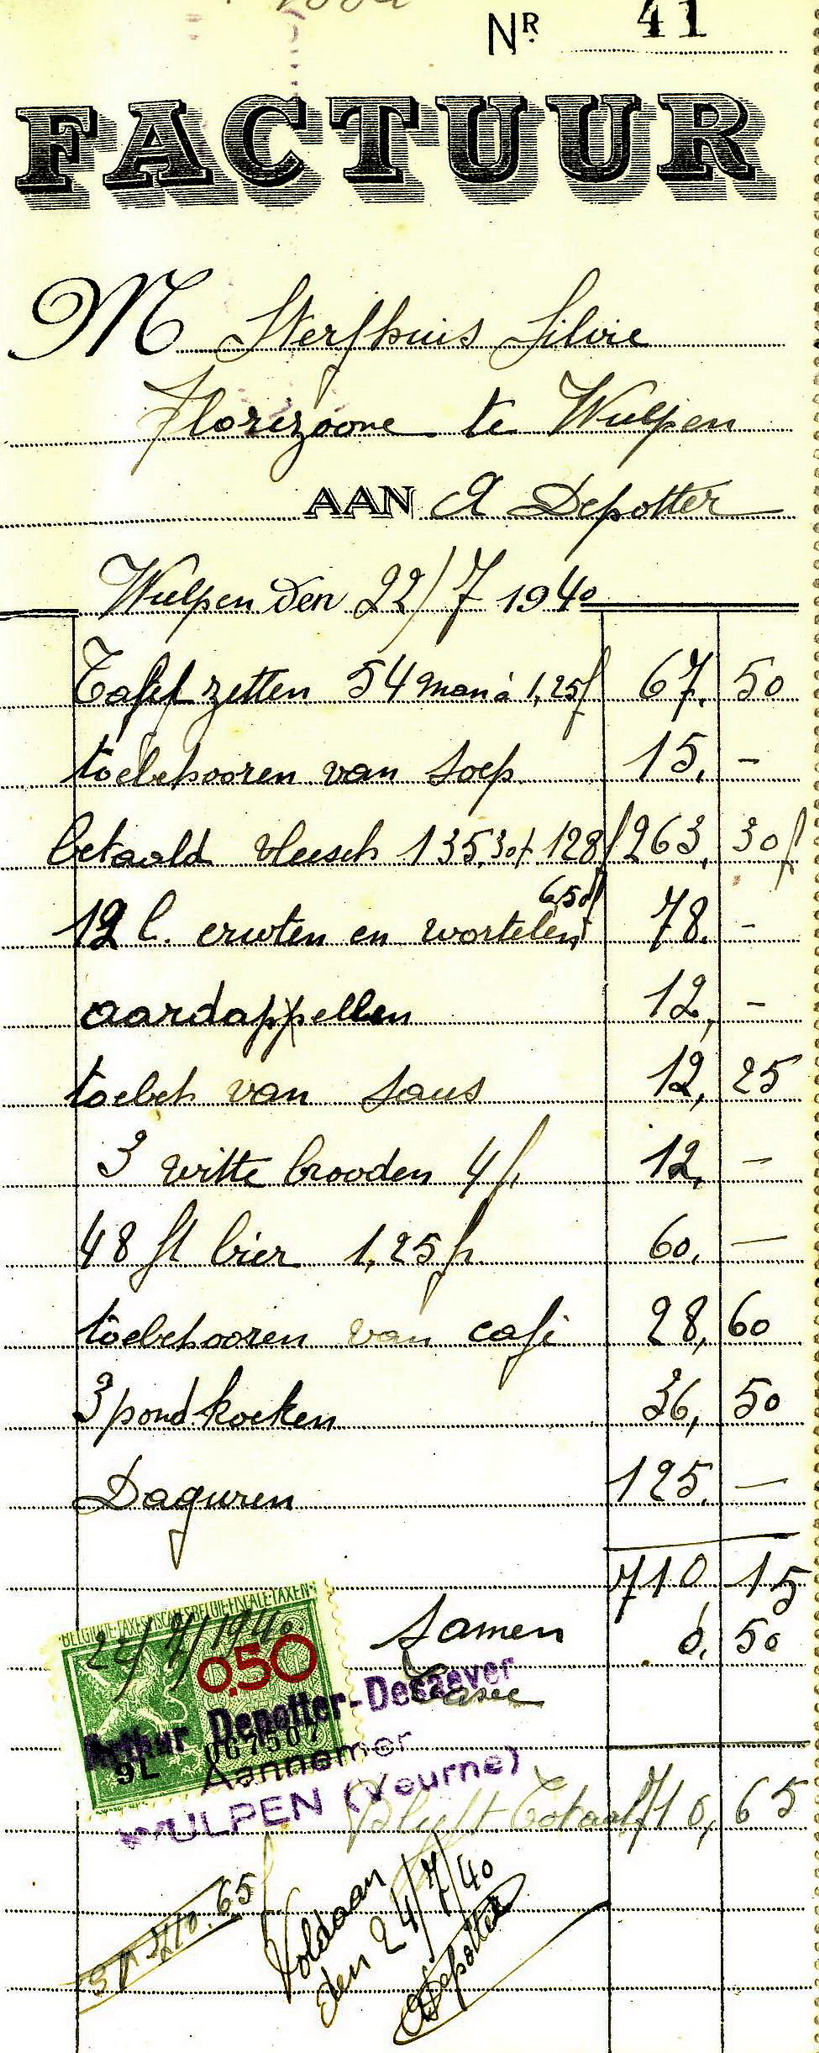 NR 41
FACTUUR
M Sterfhuis Silvie
Florizoone te Wulpen
AAN A Depotter
Wulpen den 22/7 1940
Tafel zetten 54 man à 1,25f 67, 50
toebehooren van soep 15, -
betaald vleesch 135,30f 128f 263, 30f
12 l. erwten en wortelen 6,50f 78, -
aardappellen 12, -
toebeh van saus 12, 25
3 witte brooden 4f. 12, -
48 fl bier 1,25fr 60, -
toebehooren van cafi 28, 60
3 pond koeken 36, 50
Daguren 125, -
710, 15
Samen 0, 50
BELGIQUE-TAXES FISCALES BELGIE-FISCALE TAXEN
22/7/1940
0.50
Arthur Depotter-Decaever
9L 067507
Aannemer
WULPEN (Veurne)
Blijft Totaal 710, 65
710.65f
Voldaan
den 24/7/40
ADepotter